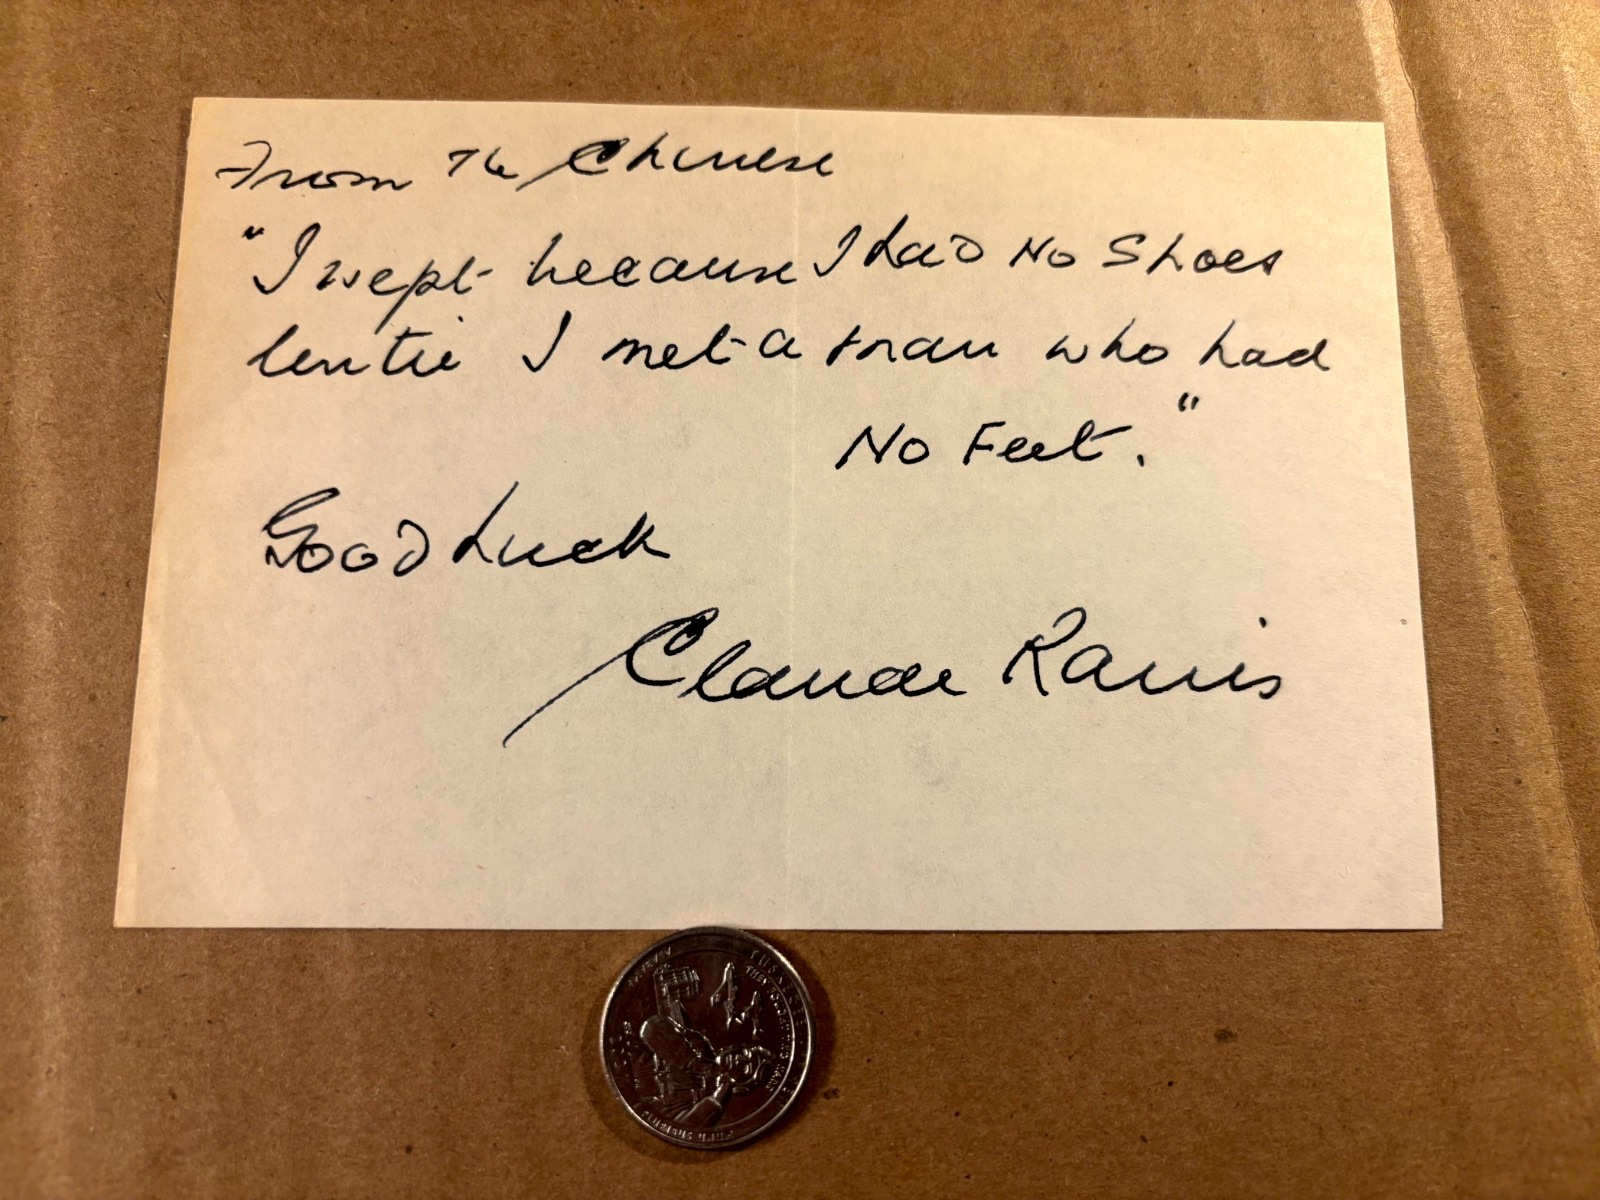 From The Chinese
"I wept because I had No Shoes
until I met a man who had
No Feet."
Good Luck
Claude Rains
TUSKEGEE AIRMEN
THEY FOUGHT TWO WARS